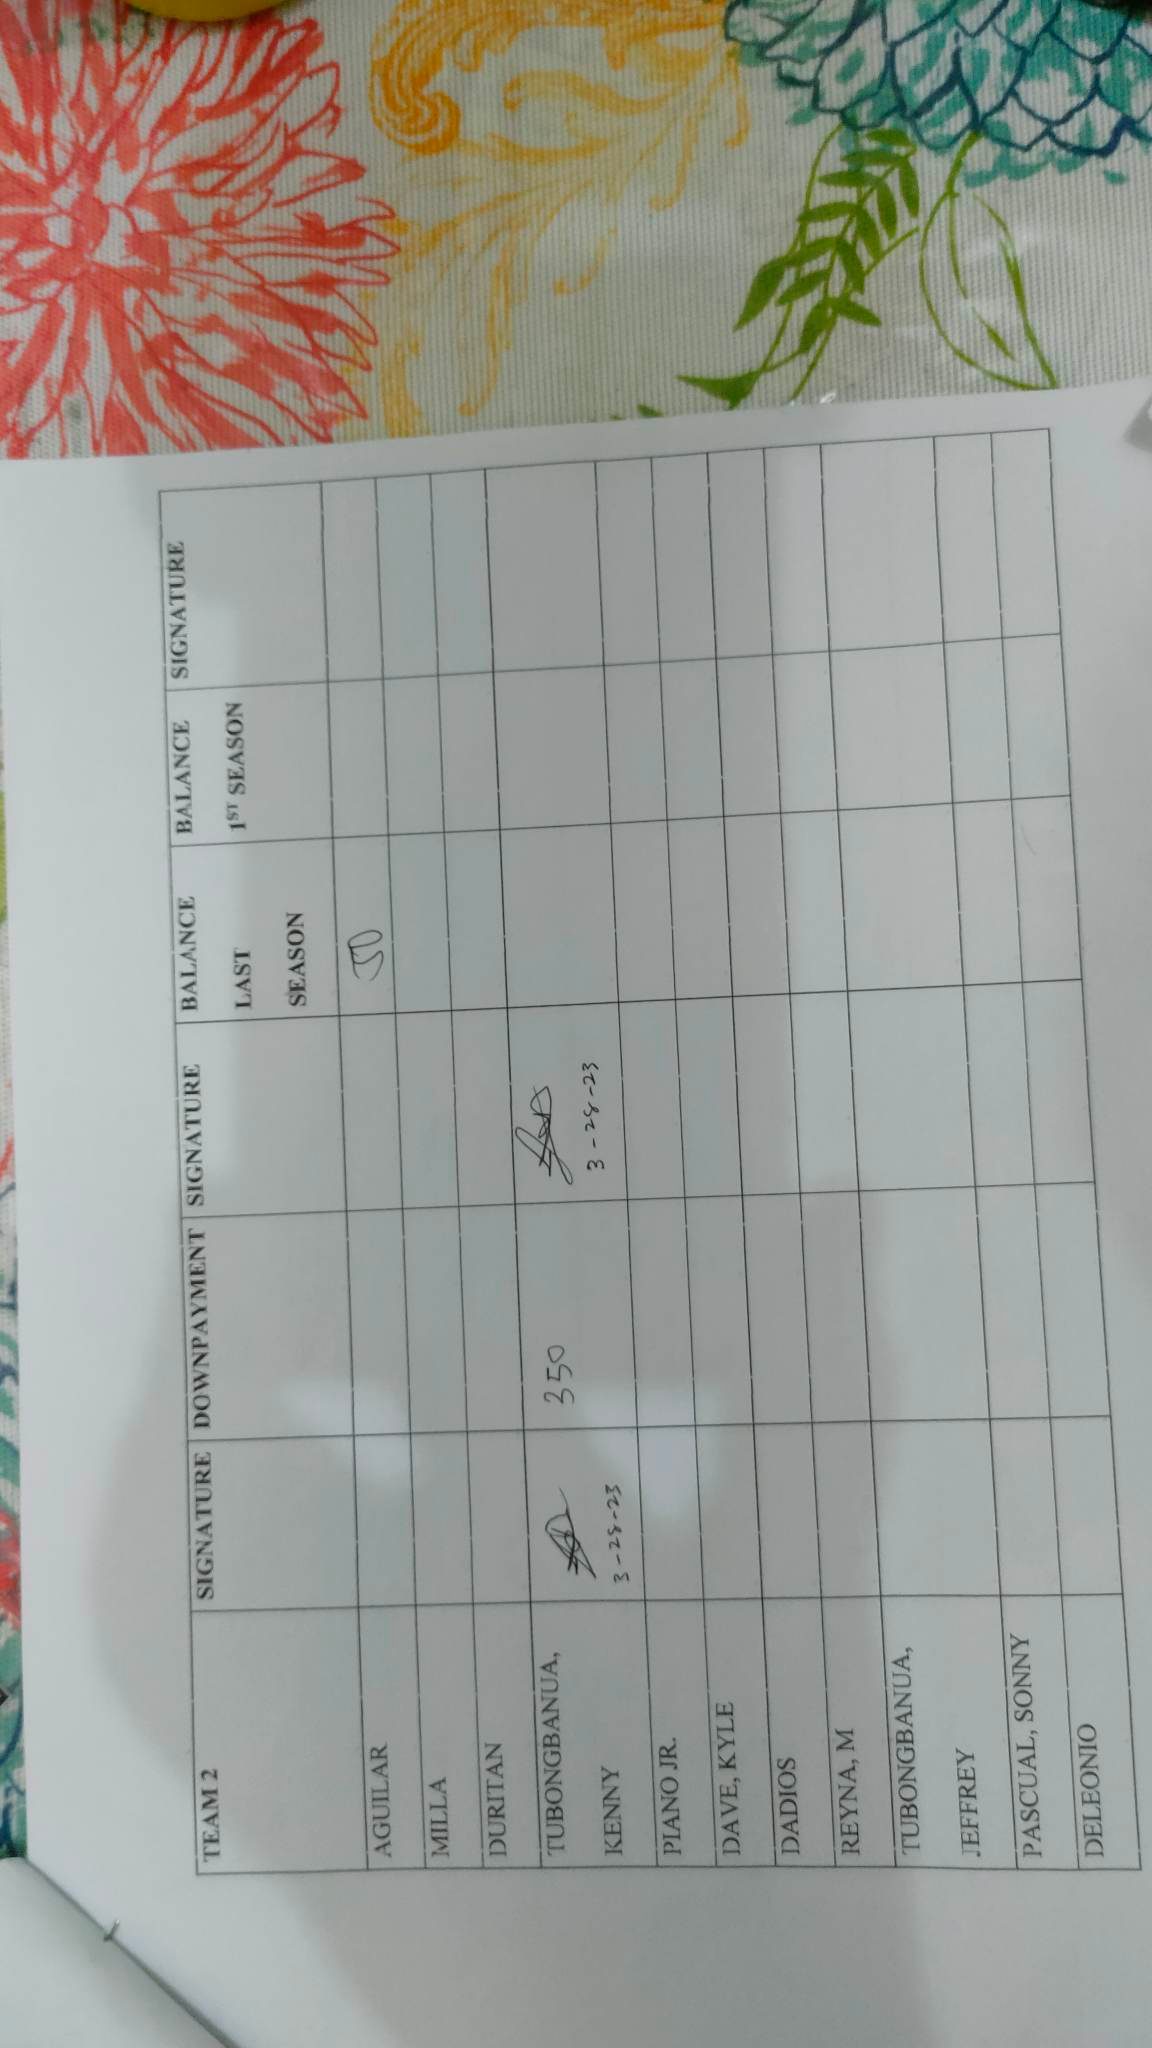 TEAM 2 SIGNATURE DOWNPAYMENT SIGNATURE BALANCE LAST SEASON BALANCE 1ST SEASON SIGNATURE
AGUILAR 50
MILLA
DURITAN
TUBONGBANUA, 350
KENNY 3-28-23 3-28-23
PIANO JR.
DAVE, KYLE
DADIOS
REYNA, M
TUBONGBANUA,
JEFFREY
PASCUAL, SONNY
DELEONIO